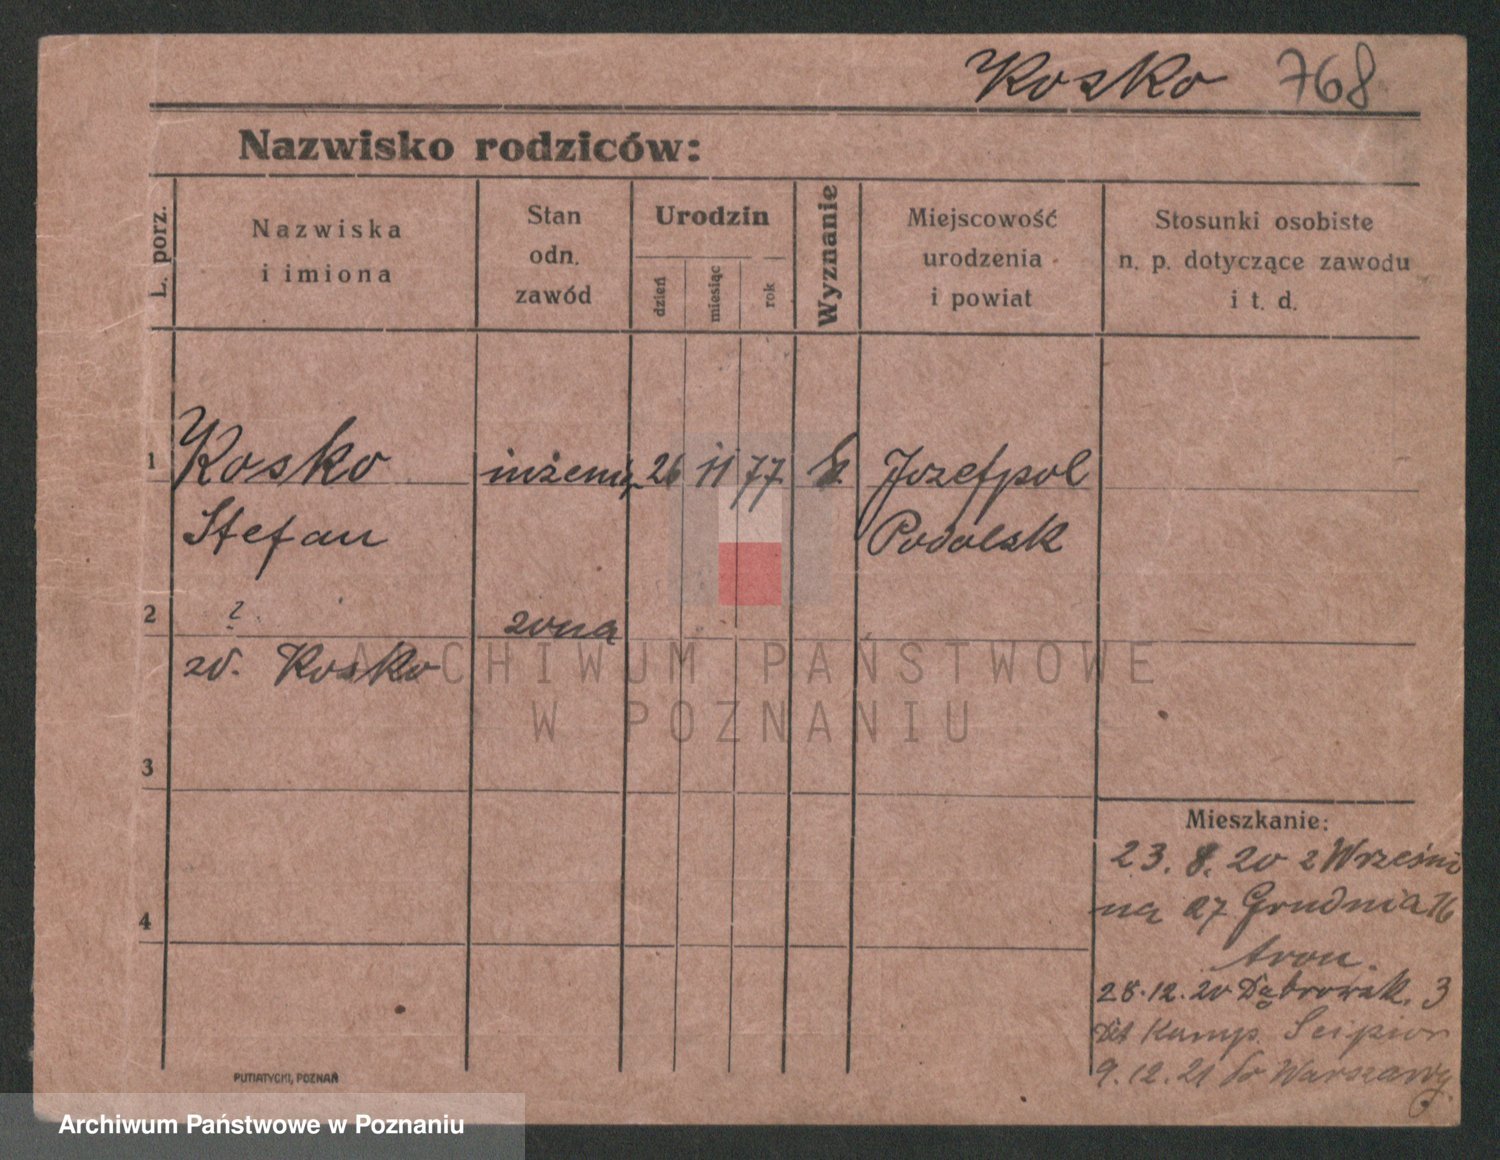 Kosko 768
Nazwisko rodziców:
L. porz.
Nazwiska
i imiona
Stan
odn.
zawód
Urodzin
dzień
miesiąc
rok
Wyznanie
Miejscowość
urodzenia
i powiat
Stosunki osobiste
n. p. dotyczące zawodu
i t. d.
1 Kosko inżenią 26 11 77 Józefpol
Stefan Podolsk
2 ? zona
zd. Kosko
3
4
Mieszkanie:
23. 8. 20 z Wrześni
na 27 Grudnia 16
28.12.20 Dąbrowsk. 3
Kamp. Scipior
9.12.21 do Warszawy
PUTIATYCKI, POZNAŃ
ARCHIWUM PAŃSTWOWE
W POZNANIU
Archiwum Państwowe w Poznaniu